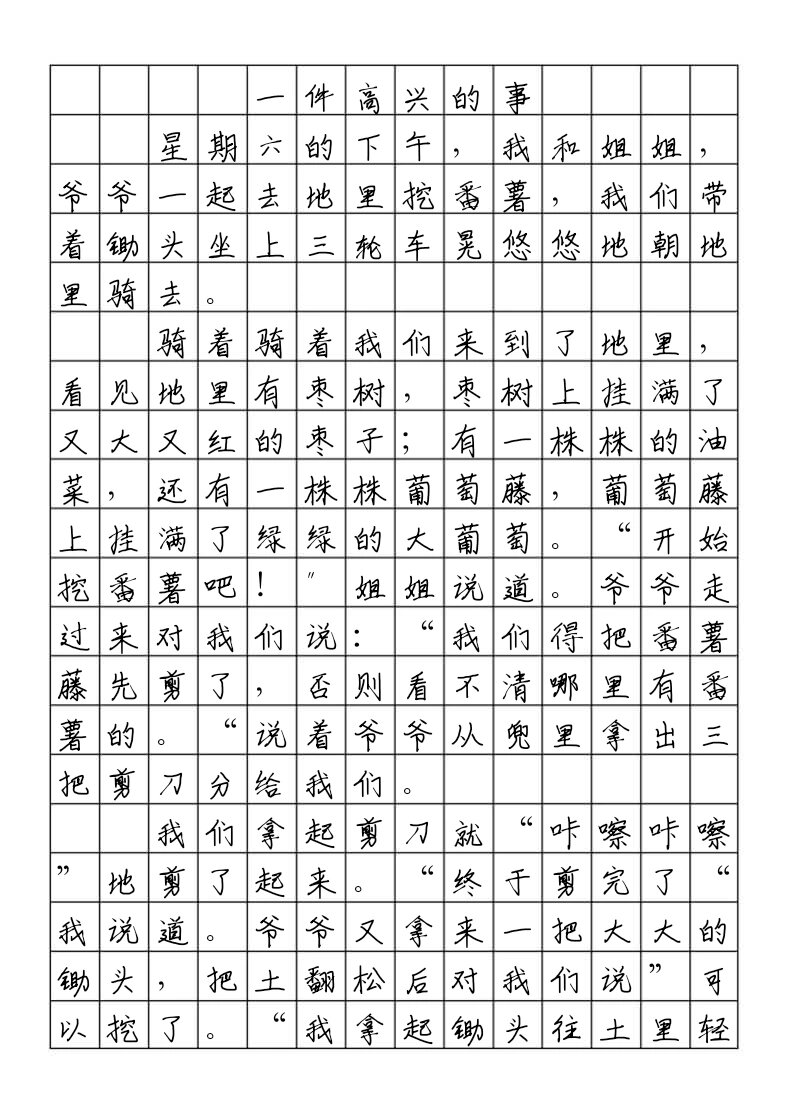 一件高兴的事
星期六的下午，我和姐姐，
爷爷一起去地里挖番薯，我们带
着锄头坐上三轮车晃悠悠地朝地
里骑去。
骑着骑着我们来到了地里，
看见地里有枣树，枣树上挂满了
又大又红的枣子；有一株株的油
菜，还有一株株葡萄藤，葡萄藤
上挂满了绿绿的大葡萄。“开始
挖番薯吧！〞姐姐说道。爷爷走
过来对我们说：“我们得把番薯
藤先剪了，否则看不清哪里有番
薯的。“说着爷爷从兜里拿出三
把剪刀分给我们。
我们拿起剪刀就“咔嚓咔嚓
”地剪了起来。“终于剪完了“
我说道。爷爷又拿来一把大大的
锄头，把土翻松后对我们说”可
以挖了。“我拿起锄头往土里轻